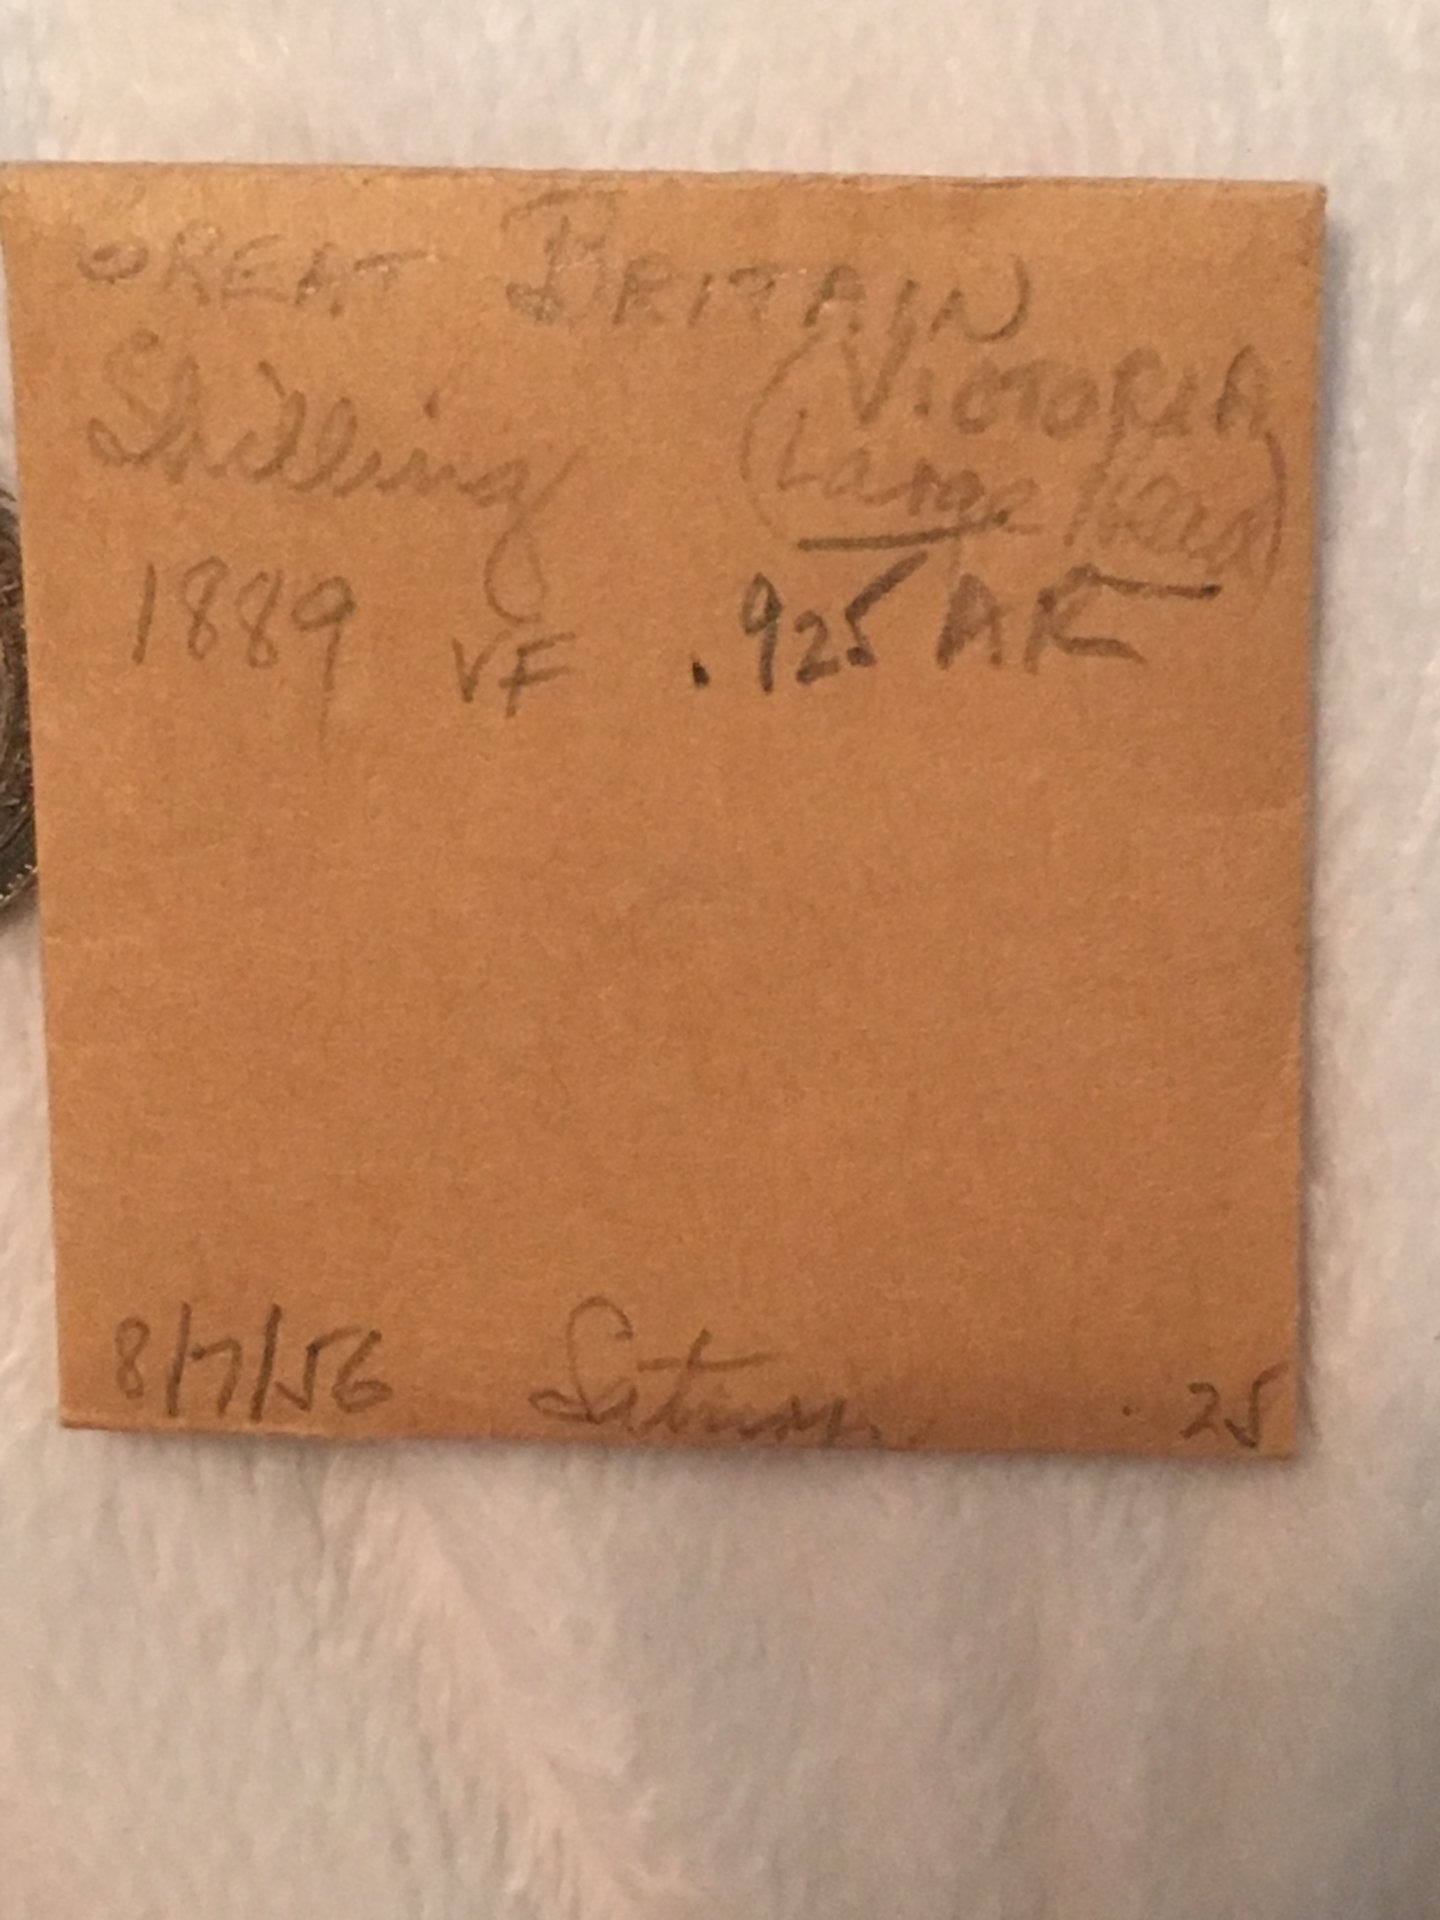 GREAT BRITAIN
Shilling (VICTORIA
Large Head)
1889 VF .925 AR
8/7/56 .25